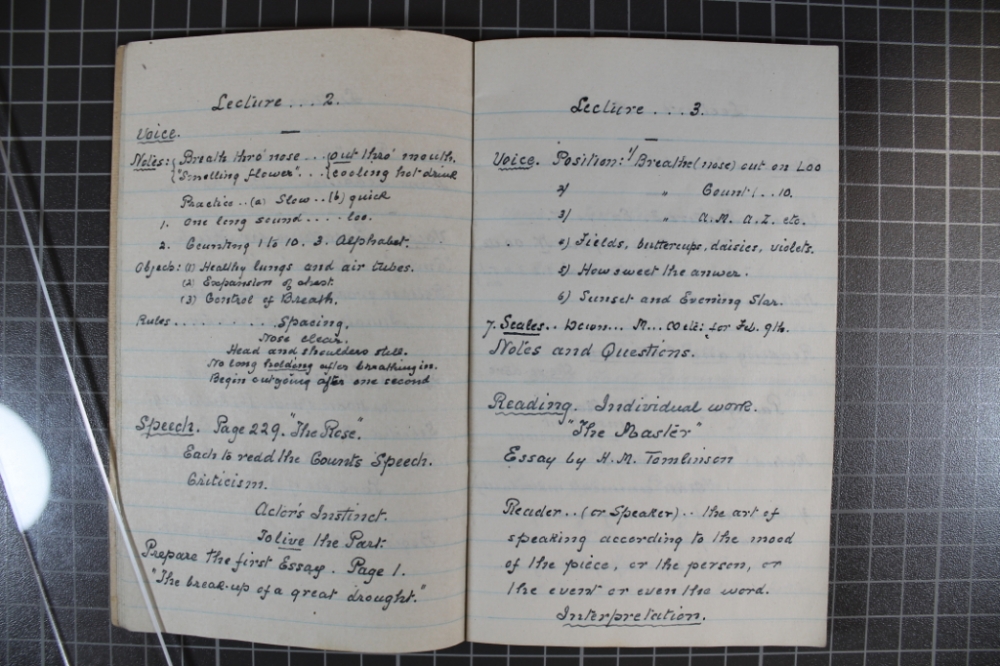 Lecture... 2.
Voice.
Notes: { Breath thro' nose... { out thro' mouth.
{ "Smelling flower"... { cooling hot drink
Practice.. (a) Slow.. (b) quick
1. One long sound.... loo.
2. Counting 1 to 10. 3. Alphabet.
Object: (1) Healthy lungs and air tubes.
(2) Expansion of chest.
(3) Control of Breath.
Rules.......... Spacing.
Nose clear.
Head and shoulders still.
No long holding after breathing in.
Begin outgoing after one second
Speech. Page 229. "The Rose".
Each to read the Counts Speech.
Criticism.
Actor's Instinct.
To live the Part.
Prepare the first Essay. Page 1.
"The break-up of a great drought."
Lecture... 3.
Voice. Position: 1/ Breathe (nose) out on Loo
2/ " Count 1.. 10.
3/ " A.M. A.Z. etc.
4) Fields, buttercups, daisies, violets.
5) How sweet the answer.
6) Sunset and Evening Star.
7. Scales.. Down... M... for Feb. 9th.
Notes and Questions.
Reading. Individual work.
"The Master"
Essay by H.M. Tomlinson
Reader.. (or Speaker).. the art of
speaking according to the mood
of the piece, or the person, or
the event or even the word.
Interpretation.